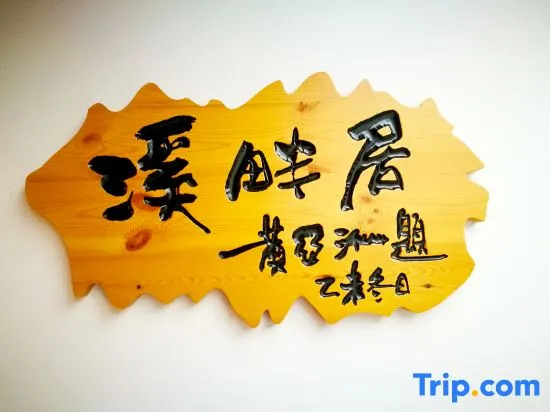 溪畔居
黄亚洲题
乙未冬日
Trip.com